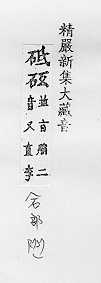 精嚴新集大藏音
砥
並旨脂二
音又直李
石部